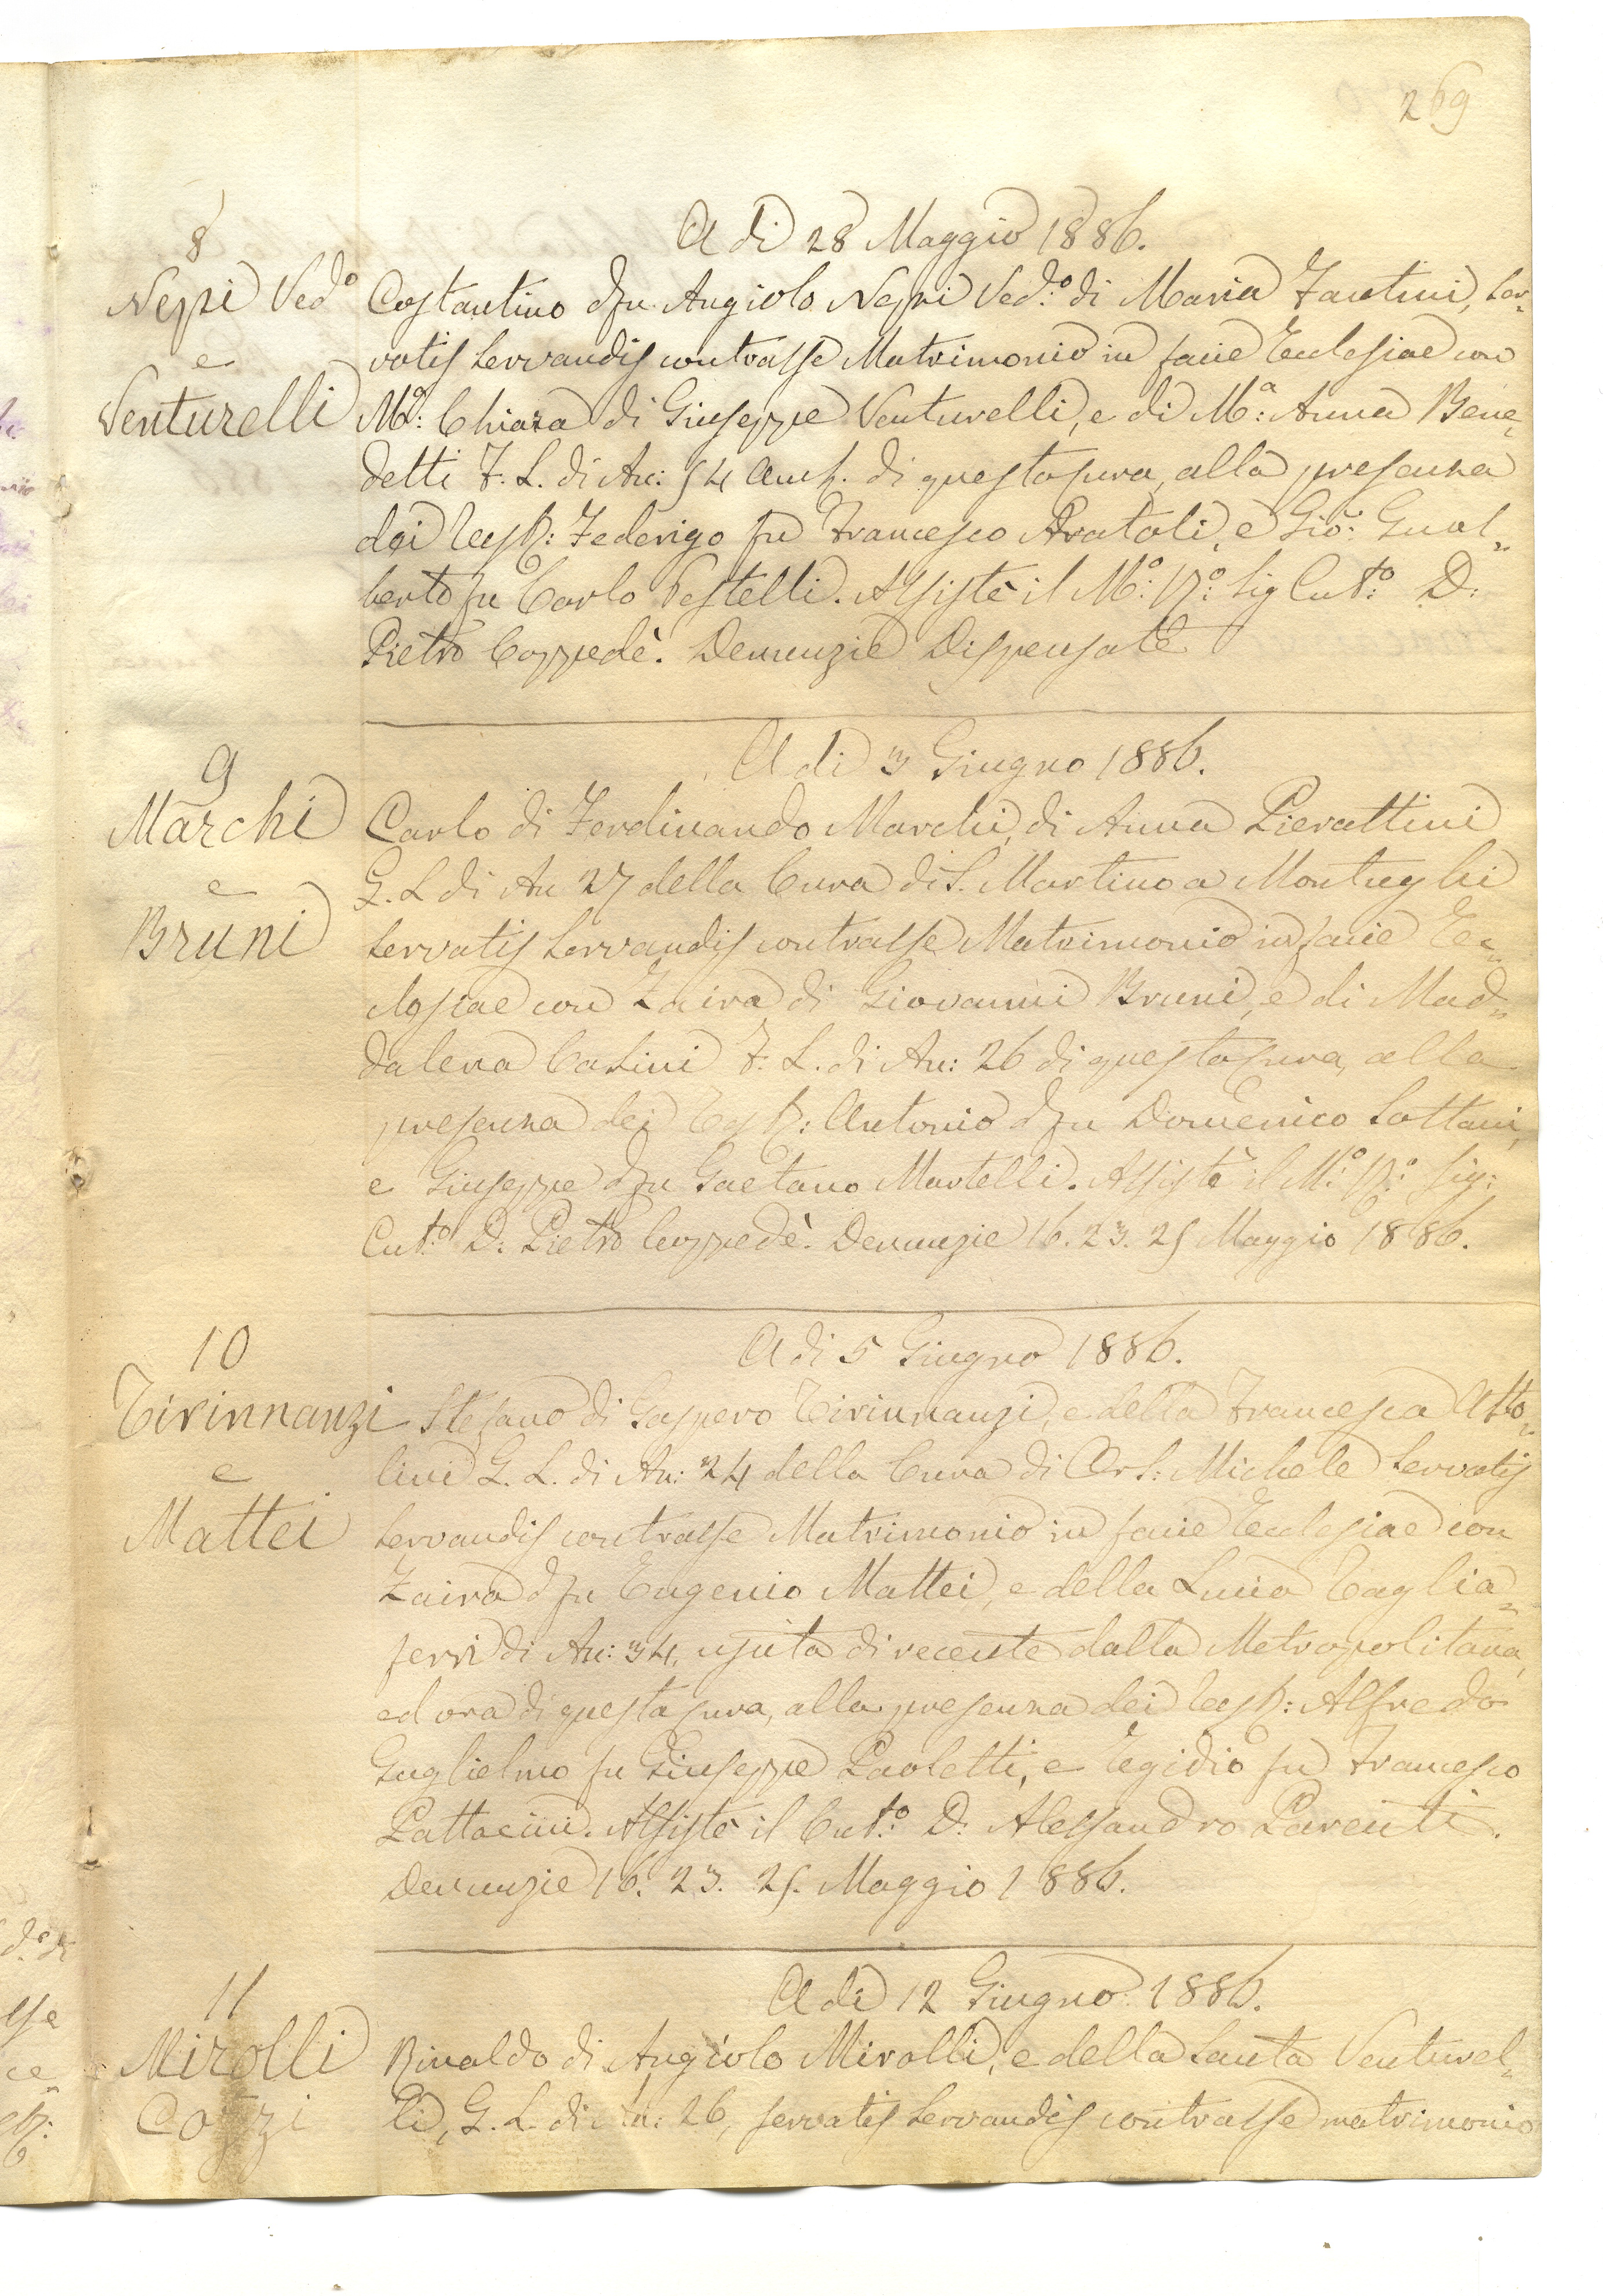 269
8
A dì 28 Maggio 1886.
Neppi Ved.o
e
Venturelli
Costantino d fu Angiolo Neppi Ved.o di Maria Fantini, ser-
vatis servandis contrasse Matrimonio in facie Ecclesiae con
M.a: Chiara di Giuseppe Venturelli, e di M.a: Anna Bene-
detti F. L. di An: 54 di questa Cura, alla presenza
dei Test: Federigo fu Francesco Pratali, e Gio: Gual-
berto fu Carlo Postelli. Assistè il M.o: R.o: Sig Cut.o: D:
Pietro Coppedè. Denunzie Dispensate
9
A dì 3 Giugno 1886.
Marchi
e
Bruni
Carlo di Ferdinando Marchi, di Anna Pierattini
G. L di An 27 della Cura di S. Martino a Montughi
servatis servandis contrasse Matrimonio in facie Ec-
clesiae con Zaira di Giovanni Bruni, e di Mad-
dalena Casini F. L. di An: 26 di questa Cura, alla
presenza dei Test: Antonio d fu Domenico Sottani,
e Giuseppe d fu Gaetano Martelli. Assistè il M.o: R.o: Sig:
Cut.o: D: Pietro Coppedè. Denunzie 16. 23. 25 Maggio 1886.
10
A dì 5 Giugno 1886.
Tirinnanzi
e
Mattei
Stefano di Gaspero Tirinnanzi, e della Francesca Atto-
lini G. L. di An: 24 della Cura di Or S: Michele servatis
servandis contrasse Matrimonio in facie Ecclesiae con
Zaira d fu Eugenio Mattei, e della Luisa Taglia-
ferri di An: 34, uscita di recente dalla Metropolitana,
ed ora di questa Cura, alla presenza dei Test: Alfredo
Guglielmo fu Giuseppe Paoletti, e Egidio fu Francesco
Pattacini. Assistè il Cut.o: D: Alessandro Parenti.
Denunzie 16. 23. 25. Maggio 1886.
11
A dì 12 Giugno 1886.
Mirolli
e Cozzi
Rinaldo di Angiolo Mirolli, e della Santa Venturel-
li, G. L. di An: 26, servatis servandis contrasse matrimonio